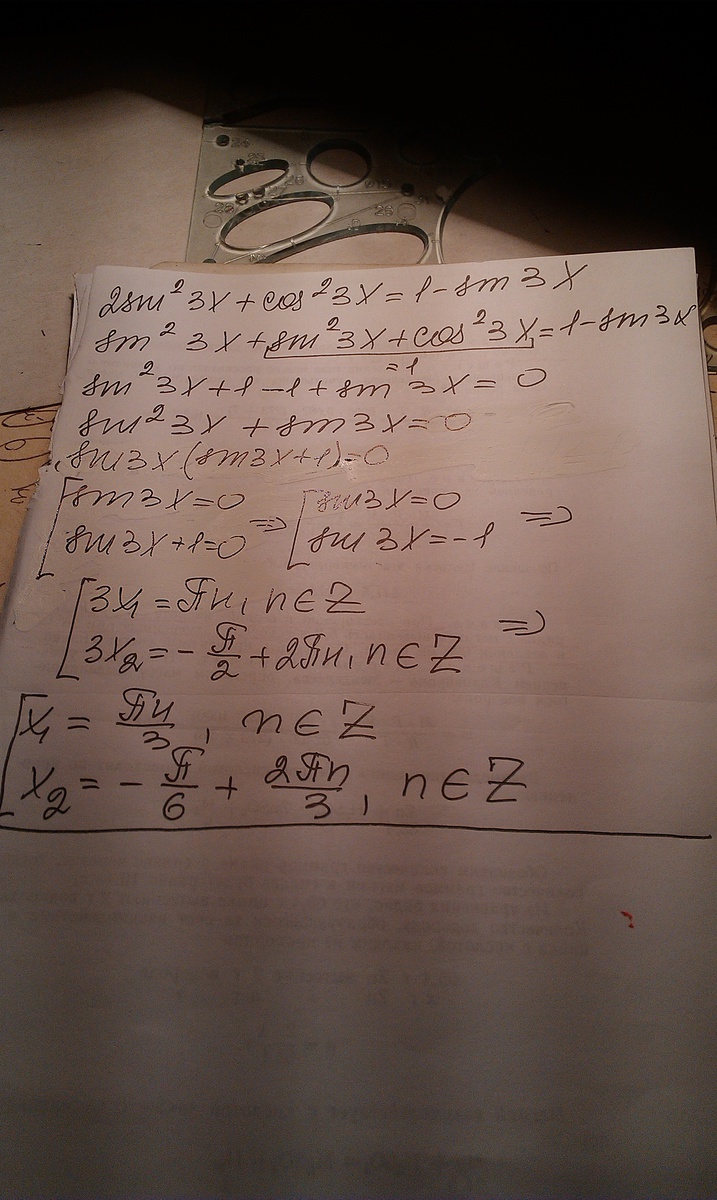 2sin²3x + cos²3x = 1 - sin3x
sin²3x + sin²3x + cos²3x = 1 - sin3x
=1
sin²3x + 1 - 1 + sin3x = 0
sin²3x + sin3x = 0
sin3x(sin3x+1)=0
[sin3x=0 => [sin3x=0 =>
sin3x+1=0 sin3x=-1
[3x₁ = πn, n∈Z =>
3x₂ = -π/2 + 2πn, n∈Z
[x₁ = πn/3, n∈Z
x₂ = -π/6 + 2πn/3, n∈Z